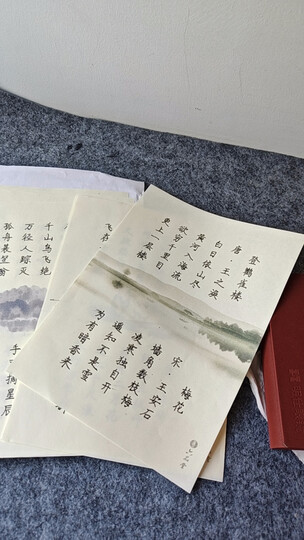 登鹳雀楼
唐 王之涣
白日依山尽
黄河入海流
欲穷千里目
更上一层楼
梅花
宋 王安石
墙角数枝梅
凌寒独自开
遥知不是雪
为有暗香来
六品堂
飞
千山鸟飞绝
万径人踪灭
孤舟蓑笠翁
手可摘星辰